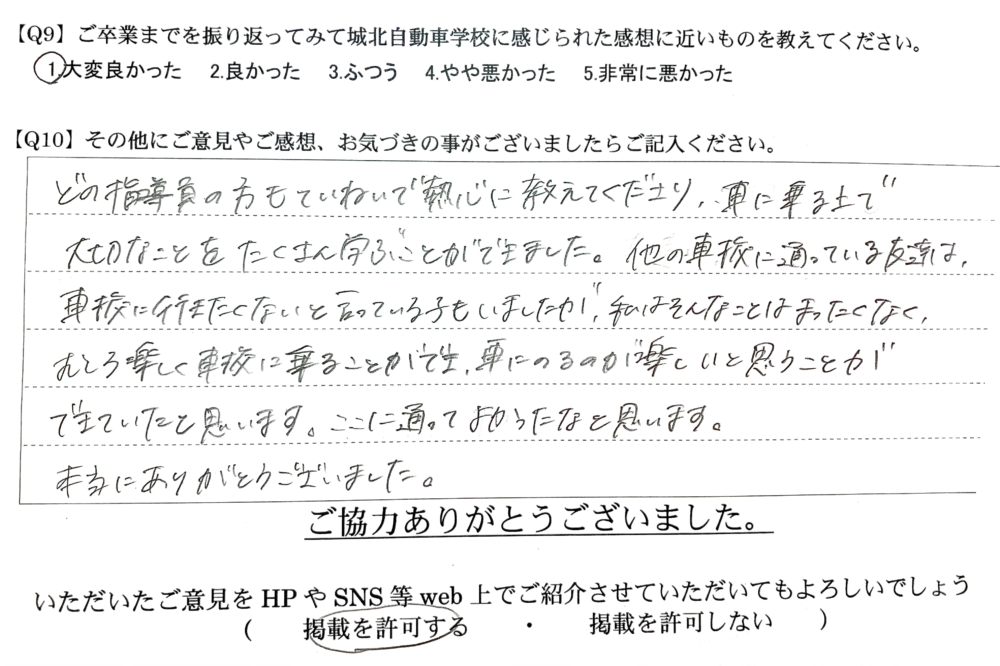 【Q9】ご卒業までを振り返ってみて城北自動車学校に感じられた感想に近いものを教えてください。
1.大変良かった 2.良かった 3.ふつう 4.やや悪かった 5.非常に悪かった
【Q10】その他にご意見やご感想、お気づきの事がございましたらご記入ください。
どの指導員の方もていねいで熱心に教えてくださり、車に乗る上で
大切なことをたくさん学ぶことができました。他の車校に通っている友達は、
車校に行きたくないと言っている子もいましたが、私はそんなことはまったくなく、
むしろ楽しく車校に乗ることができ、車にのるのが楽しいと思うことが
できていたと思います。ここに通ってよかったなと思います。
本当にありがとうございました。
ご協力ありがとうございました。
いただいたご意見をHPやSNS等web上でご紹介させていただいてもよろしいでしょう
( 掲載を許可する ・ 掲載を許可しない )